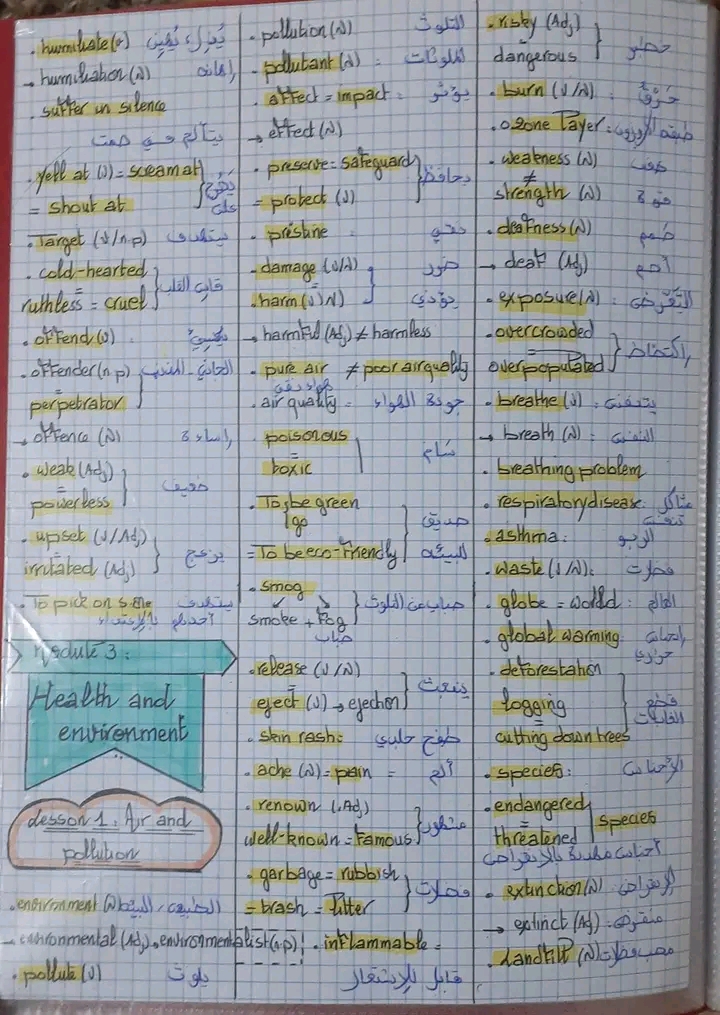 . humiliate (v) يُذِل، يُهين
→ humiliation (N) إهانة
. suffer in silence
يتألم في صمت
. yell at (v) = scream at
= shout at يصرخ على
. Target (v/n.p) يستهدف
. cold-hearted
ruthless = cruel قاسي القلب
. offend (v) يُسيئ
. offender (n.p) الجاني، المذنب
=
perpetrator
→ offence (N) إساءة
. weak (Adj)
=
powerless ضعيف
. upset (v/Adj)
=
irritated (Adj) يزعج
. To pick on s.one يستهدف
أحدهم بالإعتداء
Module 3:
Health and
environment
Lesson 1: Air and
pollution
. environment (N) الطبيعة، البيئة
→ environmental (Adj) → environmentalist (n.p)
. pollute (v) يلوث
. pollution (N) التلوث
. pollutant (N) = الملوثات
. affect = impact : يؤثر
→ effect (N)
. preserve = safeguard
= protect (v) يحافظ
. pristine نقي
. damage (v/N) ضرر
=
. harm (v/N) يؤذي
→ harmful (Adj) ≠ harmless
. pure air ≠ poor air quality
هواء نقي
. air quality = جودة الهواء
. poisonous
=
toxic سَام
. To be green
go
= To be eco-friendly صديق
البيئة
. smog ضباب من التلوث
smoke + fog
ضباب
. release (v/N)
=
eject (v) → ejection ينبعث
. skin rash: طفح جلدي
. ache (N) = pain = ألم
. renown (Adj)
well-known = famous مشهور
. garbage = rubbish
= trash = litter فضلات
. inflammable =
قابل للإشتعال
. risky (Adj)
=
dangerous خطر
. burn (v/N) : حَرْق
. ozone layer : طبقة الأوزون
. weakness (N) ضعف
≠
strength (N) قوة
. deafness (N) صَمَم
→ deaf (Adj) أصم
. exposure (N) : التَّعَرُّض
. overcrowded
=
overpopulated إكتظاظ
. breathe (v) : يتنفس
→ breath (N) : التنفس
. breathing problem
. respiratory disease : مشاكل
تنفس
. asthma : الربو
. waste (v/N) : فضلات
. globe = world : العالم
. global warming : إحتباس
حراري
. deforestation
=
logging قطع
= الغابات
cutting down trees
. species : الأجناس
. endangered
= species
threatened
أجناس مهددة بالإنقراض
. extinction (N) : الإنقراض
→ extinct (Adj) : منقرض
. Landfill (N) مصب فضلات